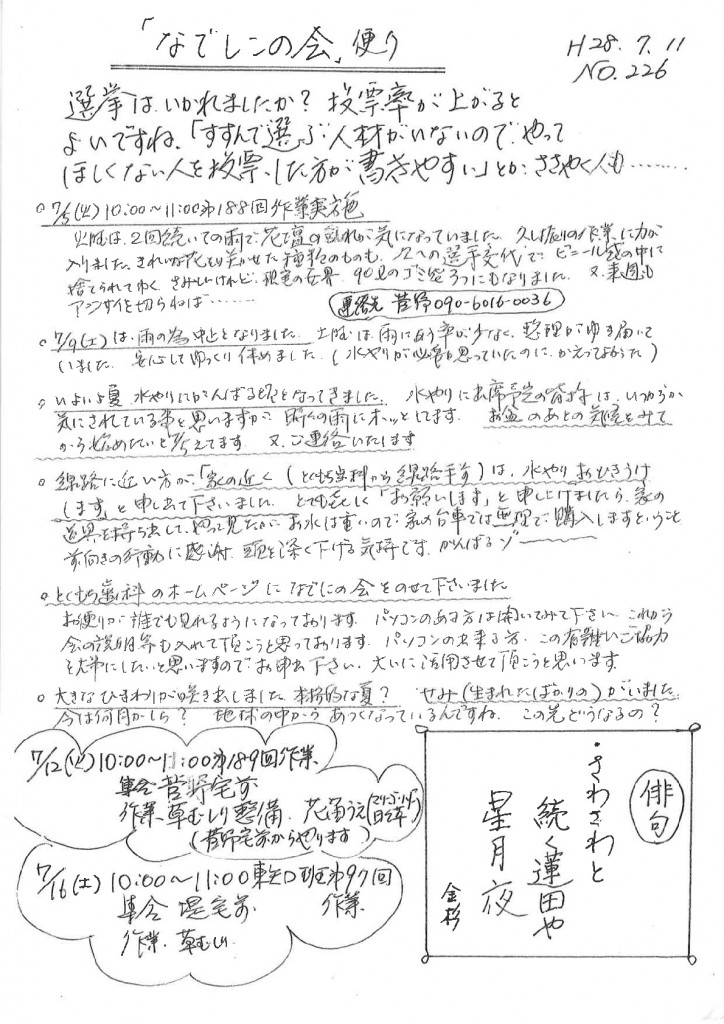 「なでしこの会」便り
H28.7.11
NO.226
選挙はいかれましたか? 投票率が上がると
よいですね。「すすんで選ぶ人材がいないので、やって
ほしくない人を投票した方が書きやすい」とか、ささやく人も………
○7/5(火)10:00〜11:00 第188回作業実施
火曜は、2回続いての雨で花壇の乱れが気になっていました。久し振りの作業に力が
入りました。きれいな花を咲かせた種類のものも、次への選手交代で、ビニール袋の中に
捨てられてゆく、さみしいけれど、現実の世界、90ℓのゴミ袋ろうにもなりました。又来週も
アジサイを切らねば………
連絡先 菅野 090-6016-0036
○7/9(土)は、雨の為中止となりました。土曜は、雨に合う率が少なく、整理がゆき届いて
いました。安心してゆっくり休めました。(水やりが必要と思っていたのに、かえってよかった)
○いよいよ夏 水やりにがんばる時となってきました。水やりに出席予定の皆様は、いつからか
気にされている事と思いますが、時々の雨にホッとしてます。お盆のあとの気候をみて
から始めたいと考えてます 又、ご連絡いたします
○線路に近い方が、「家の近く(とくもち歯科から線路手前)は、水やりおひきうけ
します」と申し出て下さいました。とても嬉しく「お願いします」と申し上げましたら、家の
道具を持ち出して、やって見たが、お水は重いので、家の台車では無理で、購入しますということ
前向きの行動に感謝、頭を深く下げる気持です。がんばるゾー
○とくもち歯科のホームページになでしこの会をのせて下さいました
お便りが誰でも見れるようになっております。パソコンのある方は開いてみて下さい。これから
会の説明等も入れて頂こうと思っております。パソコンの出来る方、この有難いご協力
を大事にしたいと思いますのでお申出下さい。大いに活用させて頂こうと思います。
○大きなひまわりが咲き出しました。本格的な夏? せみ(生まれたばかりの)がいました。
今は何月かしら? 地球の中からあつくなっているんですね。この先どうなるの?
7/12(火)10:00〜11:00 第189回作業
集合 菅野宅前
作業、草むしり整備、花苗うえ
(菅野宅前からやります)
7/16(土)10:00〜11:00 東 第97回
集合 堤宅前 作業
作業、草むしり
俳句
・さわさわと
続く蓮田や
星月夜
金杉